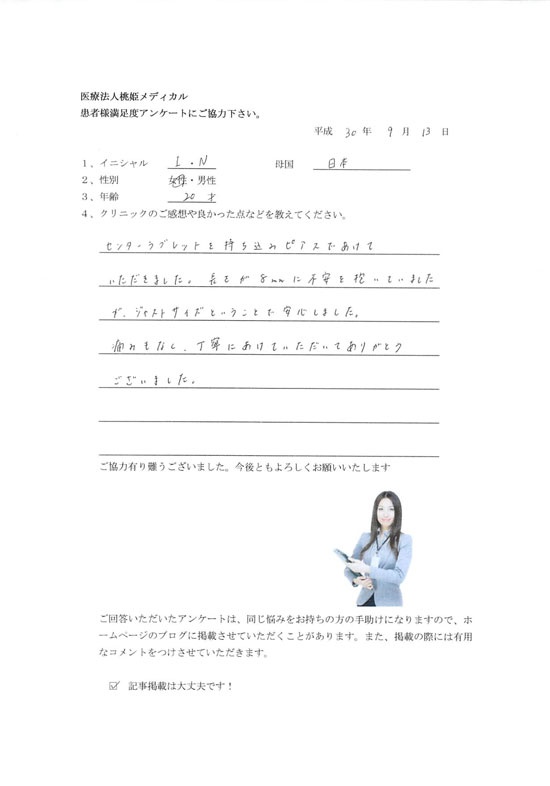 医療法人桃姫メディカル
患者様満足度アンケートにご協力下さい。
平成 30 年 9 月 13 日
1、イニシャル I・N 母国 日本
2、性別 女性・男性
3、年齢 20 才
4、クリニックのご感想や良かった点などを教えてください。
センターラブレットを持ち込みピアスであけて
いただきました。長さが8mmに不安を抱いていました
が、ジャストサイズということで安心しました。
痛みもなく、丁寧にあけていただいてありがとう
ございました。
ご協力有り難うございました。今後ともよろしくお願いいたします
ご回答いただいたアンケートは、同じ悩みをお持ちの方の手助けになりますので、ホ
ームページのブログに掲載させていただくことがあります。また、掲載の際には有用
なコメントをつけさせていただきます。
☑ 記事掲載は大丈夫です！